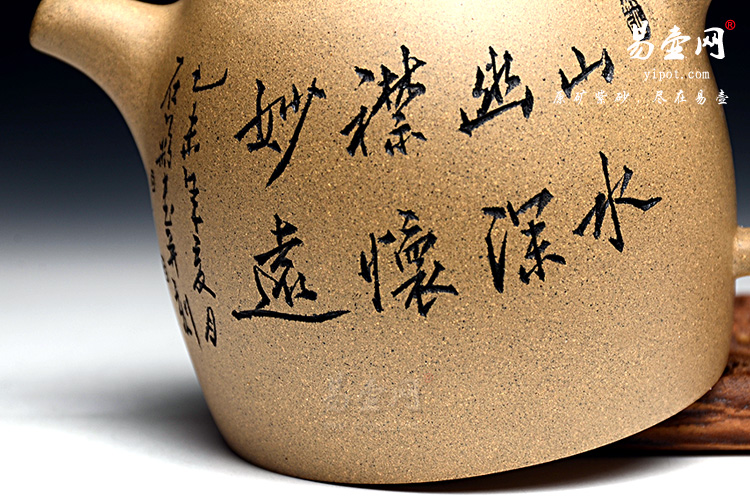 山水
幽深
襟懷
妙遠
乙未年夏月
易壺网®
yipot.com
原矿紫砂 尽在易壺
易壺网